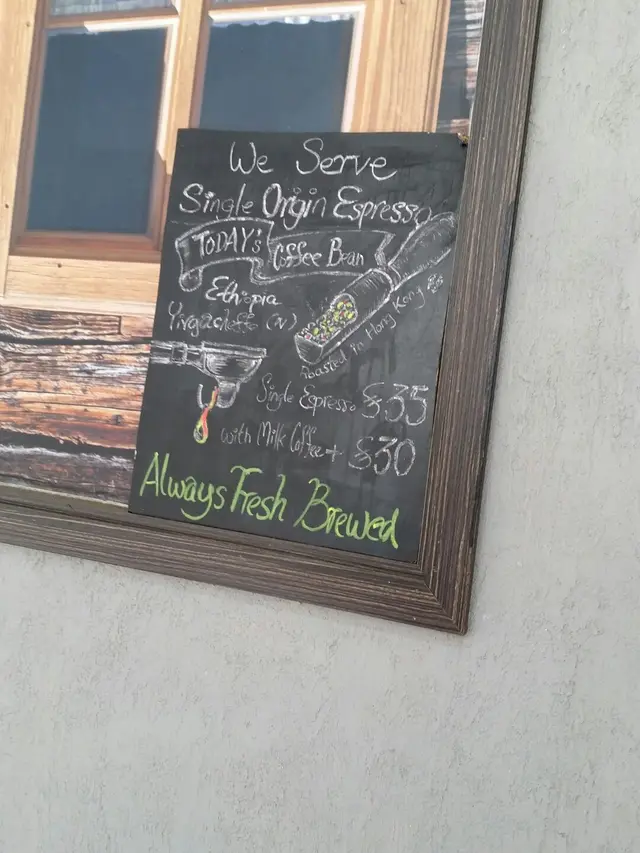 We Serve
Single Origin Espresso
TODAY's Coffee Bean
Ethiopia
Yirgacheffe (N)
Roasted in Hong Kong
Single Espresso $35
with Milk Coffee + $30
Always Fresh Brewed